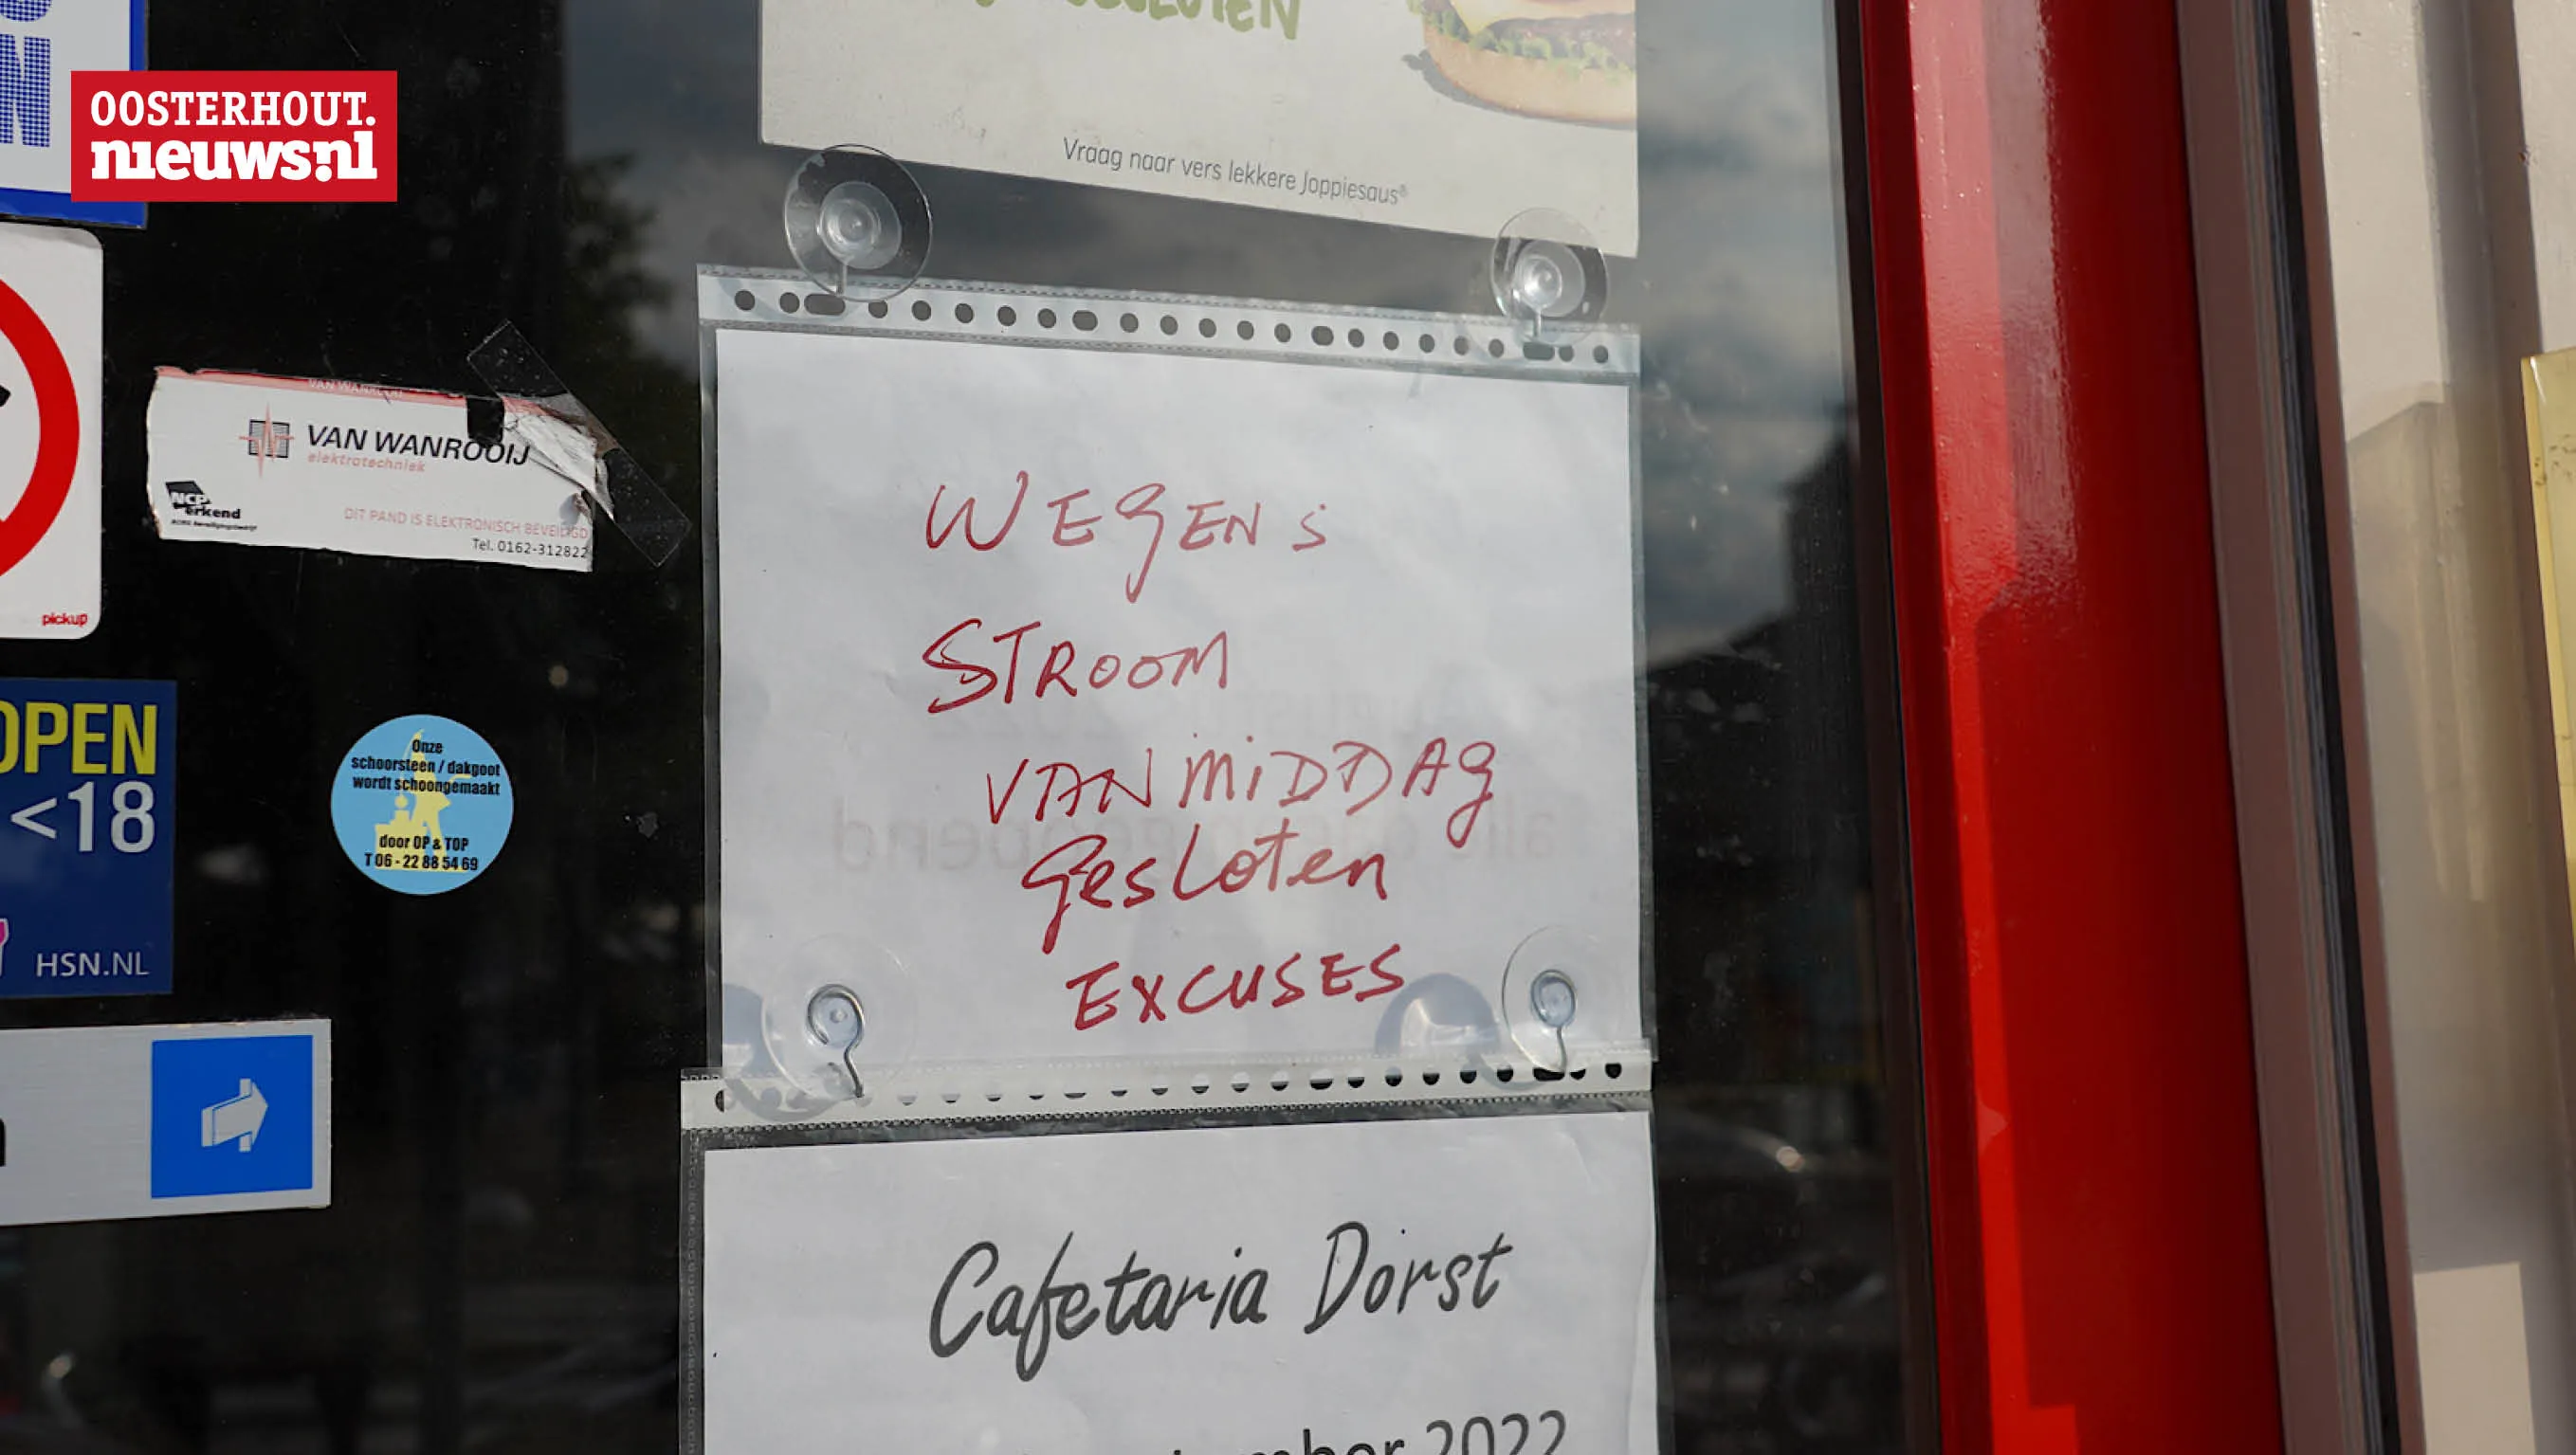 OOSTERHOUT.
nieuws.nl
GESLOTEN
Vraag naar vers lekkere Joppiesaus®
VAN WANROOIJ
VAN WANROOIJ
elektrotechniek
NCP
erkend
DIT PAND IS ELEKTRONISCH BEVEILIGD
Tel. 0162-312822
pickup
OPEN
<18
HSN.NL
Onze
schoorsteen / dakgoot
wordt schoongemaakt
door OP & TOP
T 06 - 22 88 54 69
WEGENS
STROOM
VANMIDDAG
GESLOTEN
EXCUSES
Cafetaria Dorst
2022